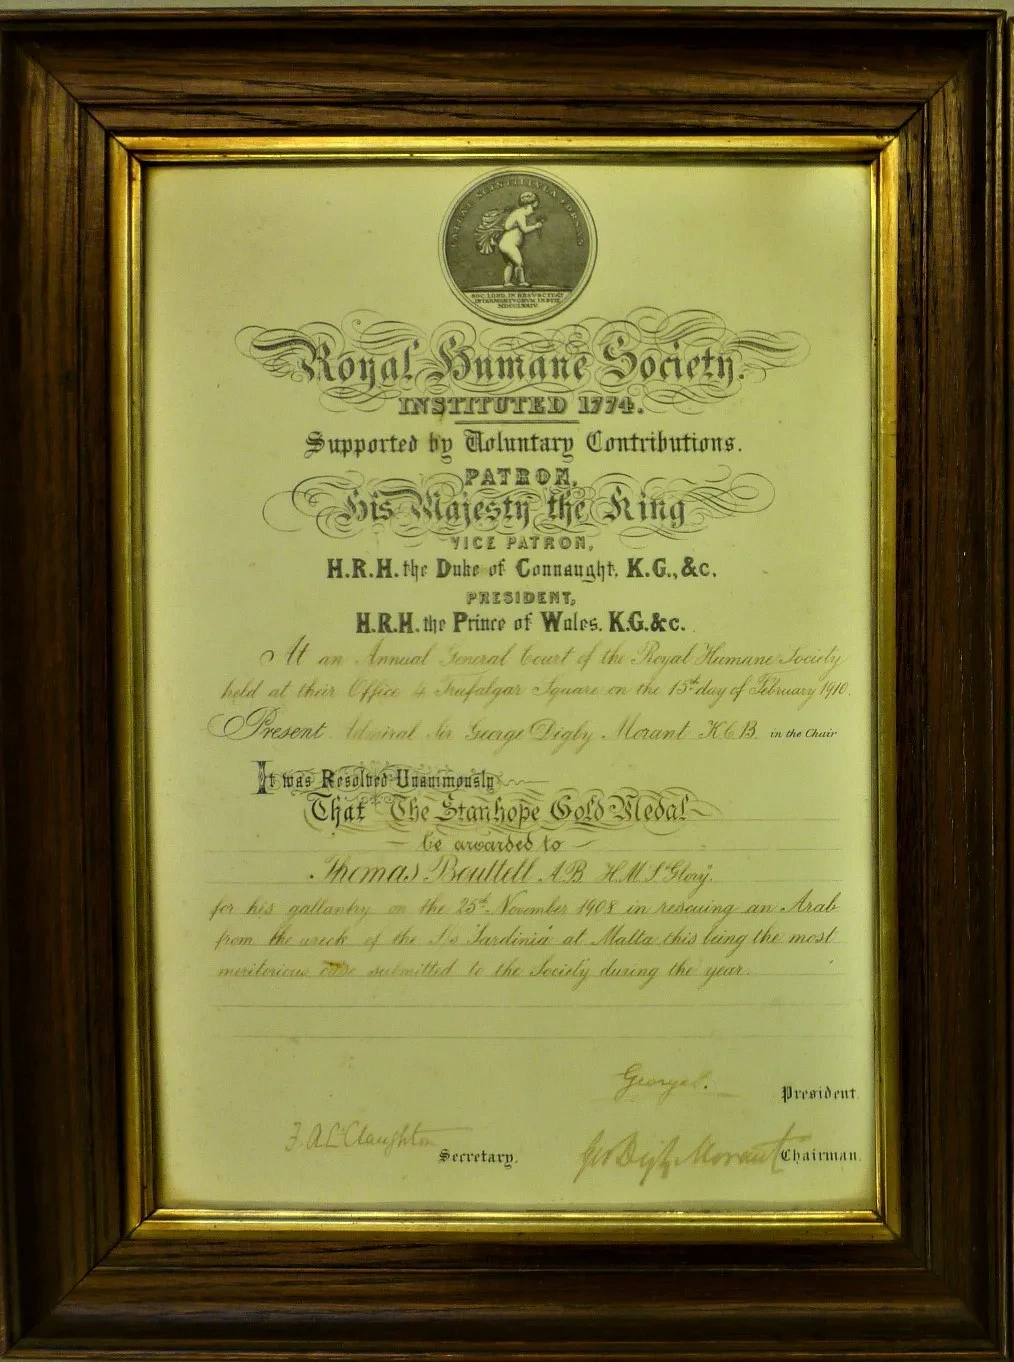 LATEAT SCINTILLVLA FORSAN
SOC. LOND. IN RESVSCITAT
INTERMORTVORVM INSTIT.
MDCCLXXIV.
Royal Humane Society.
INSTITUTED 1774.
Supported by Voluntary Contributions.
PATRON,
His Majesty the King
VICE PATRON,
H.R.H. the Duke of Connaught. K.G., &c.
PRESIDENT,
H.R.H. the Prince of Wales. K.G. &c.
At an Annual General Court of the Royal Humane Society
held at their Office 4 Trafalgar Square on the 15th day of February 1910.
Present Admiral Sir George Digby Morant KCB in the Chair
It was Resolved Unanimously
That The Stanhope Gold Medal
be awarded to
Thomas Bouttell A.B. H.M.S "Glory"
for his gallantry on the 25th November 1908 in rescuing an Arab
from the wreck of the S.s "Sardinia" at Malta this being the most
meritorious case submitted to the Society during the year.
George P. President.
F. A. C. Claughton Secretary.
Geo Digby Morant Chairman.